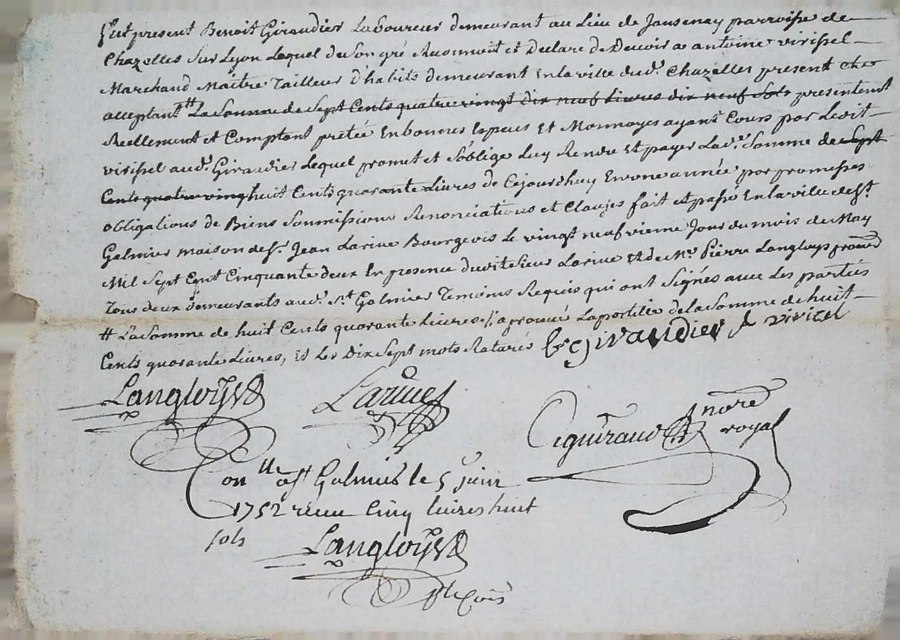 Fut present Benoit Giraudier Laboureur demeurant au Lieu de Jansenay parroisse de
Chazelles Sur Lyon Lequel de Son gré Reconnoit et Declare de Devoir a antoine virissel
Marchand Maitre Tailleur D'habits demeurant En la ville dud. Chazelles present et
acceptant # La Somme de Sept Cents quatre vingt dix neuf Livres dix neuf Sols presentement
Reellement et Comptant pretée En bonnes Especes Et Monnoyes ayant Cours par Ledit
virissel aud. Giraudier Lequel promet et S'oblige Luy Rendre Et payer Lad. Somme de Sept
Cents quatre vingt huit Cents quarante Livres de Cejourdhuy En une année par promesses
obligations de Biens Soumissions Renonciations et Clauses fait et passé En la ville de St.
Galmier maison de Sr. Jean Larive Bourgeois Le vingt neuf vieme Jour du mois de May
Mil Sept Cent Cinquante deux En presence dudit Sieur Larive Et de Me. Pierre Langloys
Tous deux demeurants aud. St. Galmier Temoins Requis qui ont Signés avec Les parties
# La Somme de huit Cents quarante Livres. J'aprouve L'apostille de la Somme de huit
Cents quarante Livres, Et Les Dix Sept mots Raturés be giraudier A viricel
Langloys Larive
Ciguiraud Nore.
royal
Con.lle a St. Galmier le 5e. juin
1752 receu Cinq livres huit
sols
Langloys